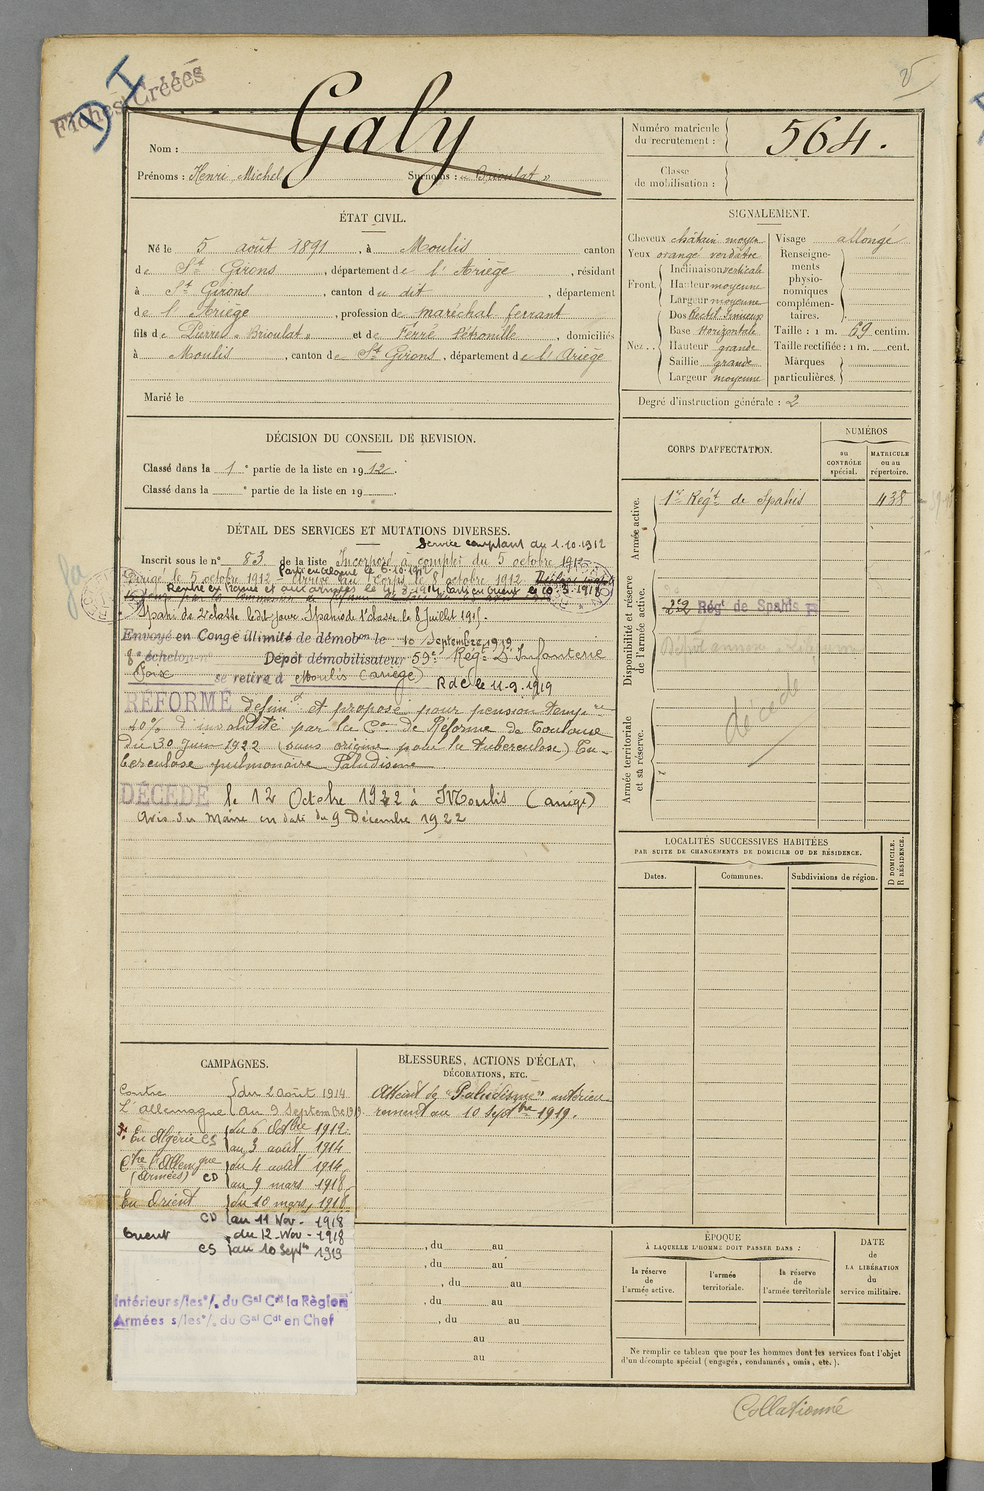 Fiches Créées
D I
v
Galy
Nom :
Prénoms : Henri Michel Surnoms : « Brioulat »
Numéro matricule du recrutement : 564.
Classe de mobilisation :
ÉTAT CIVIL.
Né le 5 août 1891, à Moulis canton
de St Girons, département de l'Ariège, résidant
à St Girons, canton du dit, département
de l'Ariège, profession de maréchal ferrant
fils de Pierre « Brioulat » et de Ferré Pétronille, domiciliés
à Moulis, canton de St Girons, département de l'Ariège
Marié le
SIGNALEMENT.
Cheveux châtain moyen
Yeux orangé verdâtre
Front. Inclinaison verticale
Hauteur moyenne
Largeur moyenne
Nez.. Dos Rectil. Sinueux
Base Horizontale
Hauteur grande
Saillie grande
Largeur moyenne
Visage allongé
Renseignements physionomiques complémentaires.
Taille : 1 m. 69 centim.
Taille rectifiée : 1 m. cent.
Marques particulières.
Degré d'instruction générale : 2
DÉCISION DU CONSEIL DE REVISION.
Classé dans la 1e partie de la liste en 1912.
Classé dans la e partie de la liste en 19
DÉTAIL DES SERVICES ET MUTATIONS DIVERSES.
Service comptant du 1.10.1912
Inscrit sous le n° 83 de la liste Incorporé à compter du 5 octobre 1912
Dirigé le 5 octobre 1912 Arrivé au Corps le 8 octobre 1912
Spahi de 2e classe le dit jour. Spahi de 1e classe le 8 Juillet 1915.
Envoyé en Congé illimité de démobon le 10 Septembre 1919
8e échelon n° Dépôt démobilisateur 59e Régt D'Infanterie
Foix se retire à Moulis (Ariège) R de C le 11-9-1919
RÉFORMÉ définif et proposé pour pension tempre
40% d'invalidité par la Con de Réforme de Toulouse
du 30 Juin 1922 (sans origine pour la tuberculose) Tu-
berculose pulmonaire Paludisme
DÉCÉDÉ le 12 Octobre 1922 à Moulis (Ariège)
Avis du Maire en date du 9 Décembre 1922
CORPS D'AFFECTATION.
NUMÉROS
au CONTRÔLE spécial.
MATRICULE ou au répertoire.
Armée active.
1er Régt de Spahis 438
Disponibilité et réserve de l'armée active.
Régt de Spahis
Armée territoriale et sa réserve.
décédé
LOCALITÉS SUCCESSIVES HABITÉES
PAR SUITE DE CHANGEMENTS DE DOMICILE OU DE RÉSIDENCE.
Dates.
Communes.
Subdivisions de région.
D DOMICILE.
R RÉSIDENCE.
CAMPAGNES.
Contre du 2 août 1914
L'allemagne au 9 Septembre 1919
En Algérie CS du 6 Octbre 1912
au 3 août 1914
Ctre l'Allemgne du 4 août 1914
(armées) CD au 9 mars 1918
En Orient du 10 mars 1918
CD au 11 Nov. 1918
Orient du 12 Nov. 1918
CS au 10 Septbre 1919
Intérieur s/les o/. du Gal Cdt la Région
Armées s/les o/. du Gal Cdt en Chef
BLESSURES, ACTIONS D'ÉCLAT,
DÉCORATIONS, ETC.
Atteint de "Paludisme" antérieu-
rement au 10 Septbre 1919.
, du au
, du au
, du au
, du au
, du au
au
au
ÉPOQUE
À LAQUELLE L'HOMME DOIT PASSER DANS :
la réserve de l'armée active.
l'armée territoriale.
la réserve de l'armée territoriale
DATE de LA LIBÉRATION du service militaire.
Ne remplir ce tableau que pour les hommes dont les services font l'objet
d'un décompte spécial (engagés, condamnés, omis, etc.).
Collationné